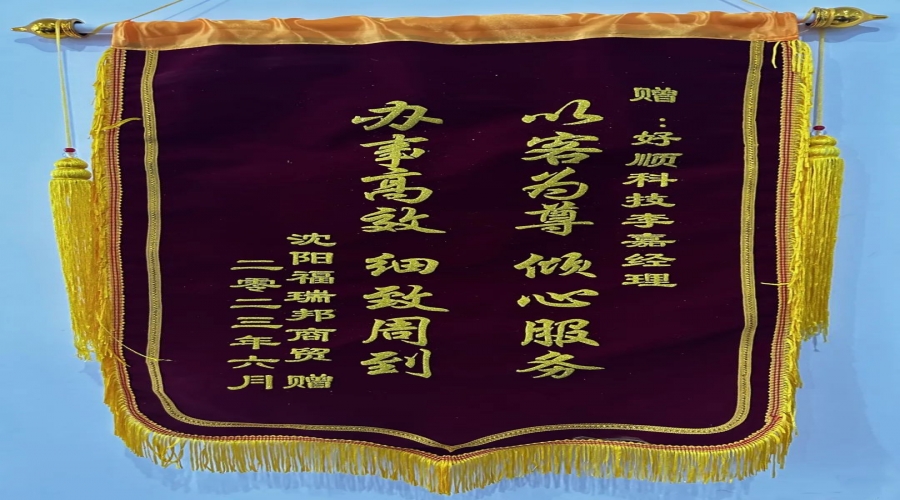 赠:好顺科技李嘉经理
以客为尊 倾心服务
办事高效 细致周到
沈阳福瑞邦商贸 赠
二零二三年六月